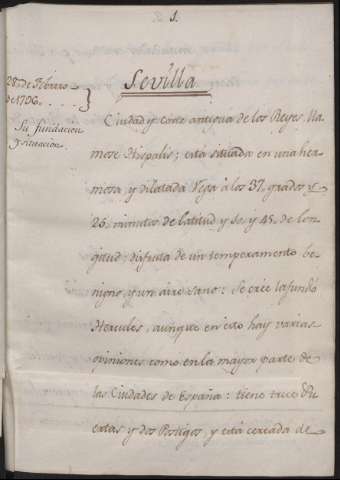 1.
Sevilla
28. de Febrero
de 1796. . . .
Su fundacion
y situacion.
Ciudad y corte antigua de los Reyes. Lla
mose Hispalis; está situada en una her
mosa, y dilatada Vega à los 37. grados y
26. minutos de latitud y so, y 45. de lon
gitud: disfruta de un temperamento be
nigno, y un aire sano: Se cree la fundó
Hercules, aunque en esto hay varias
opiniones como en la mayor parte de
las Ciudades de España: tiene trece Pu
ertas y dos Postigos, y está cercada de